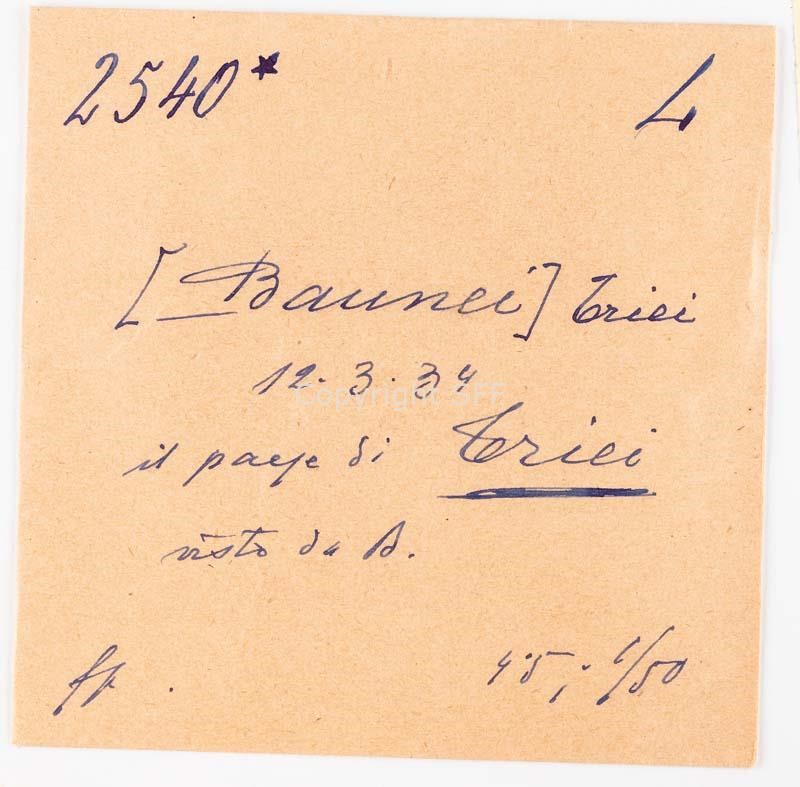 2540* L
[Baunei] Triei
12.3.34
Copyright SFF
il paese di Triei
visto da B.
ff.
4.5,- 1/50